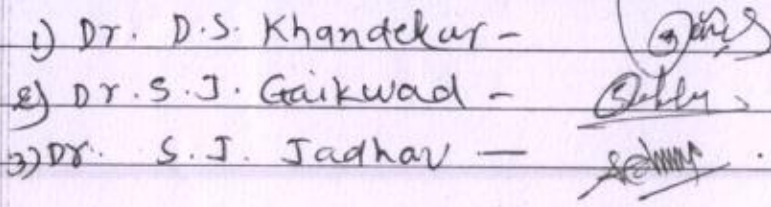 1) Dr. D.S. Khandekar -
2) Dr. S. J. Gaikwad -
3) Dr. S. J. Jadhav —